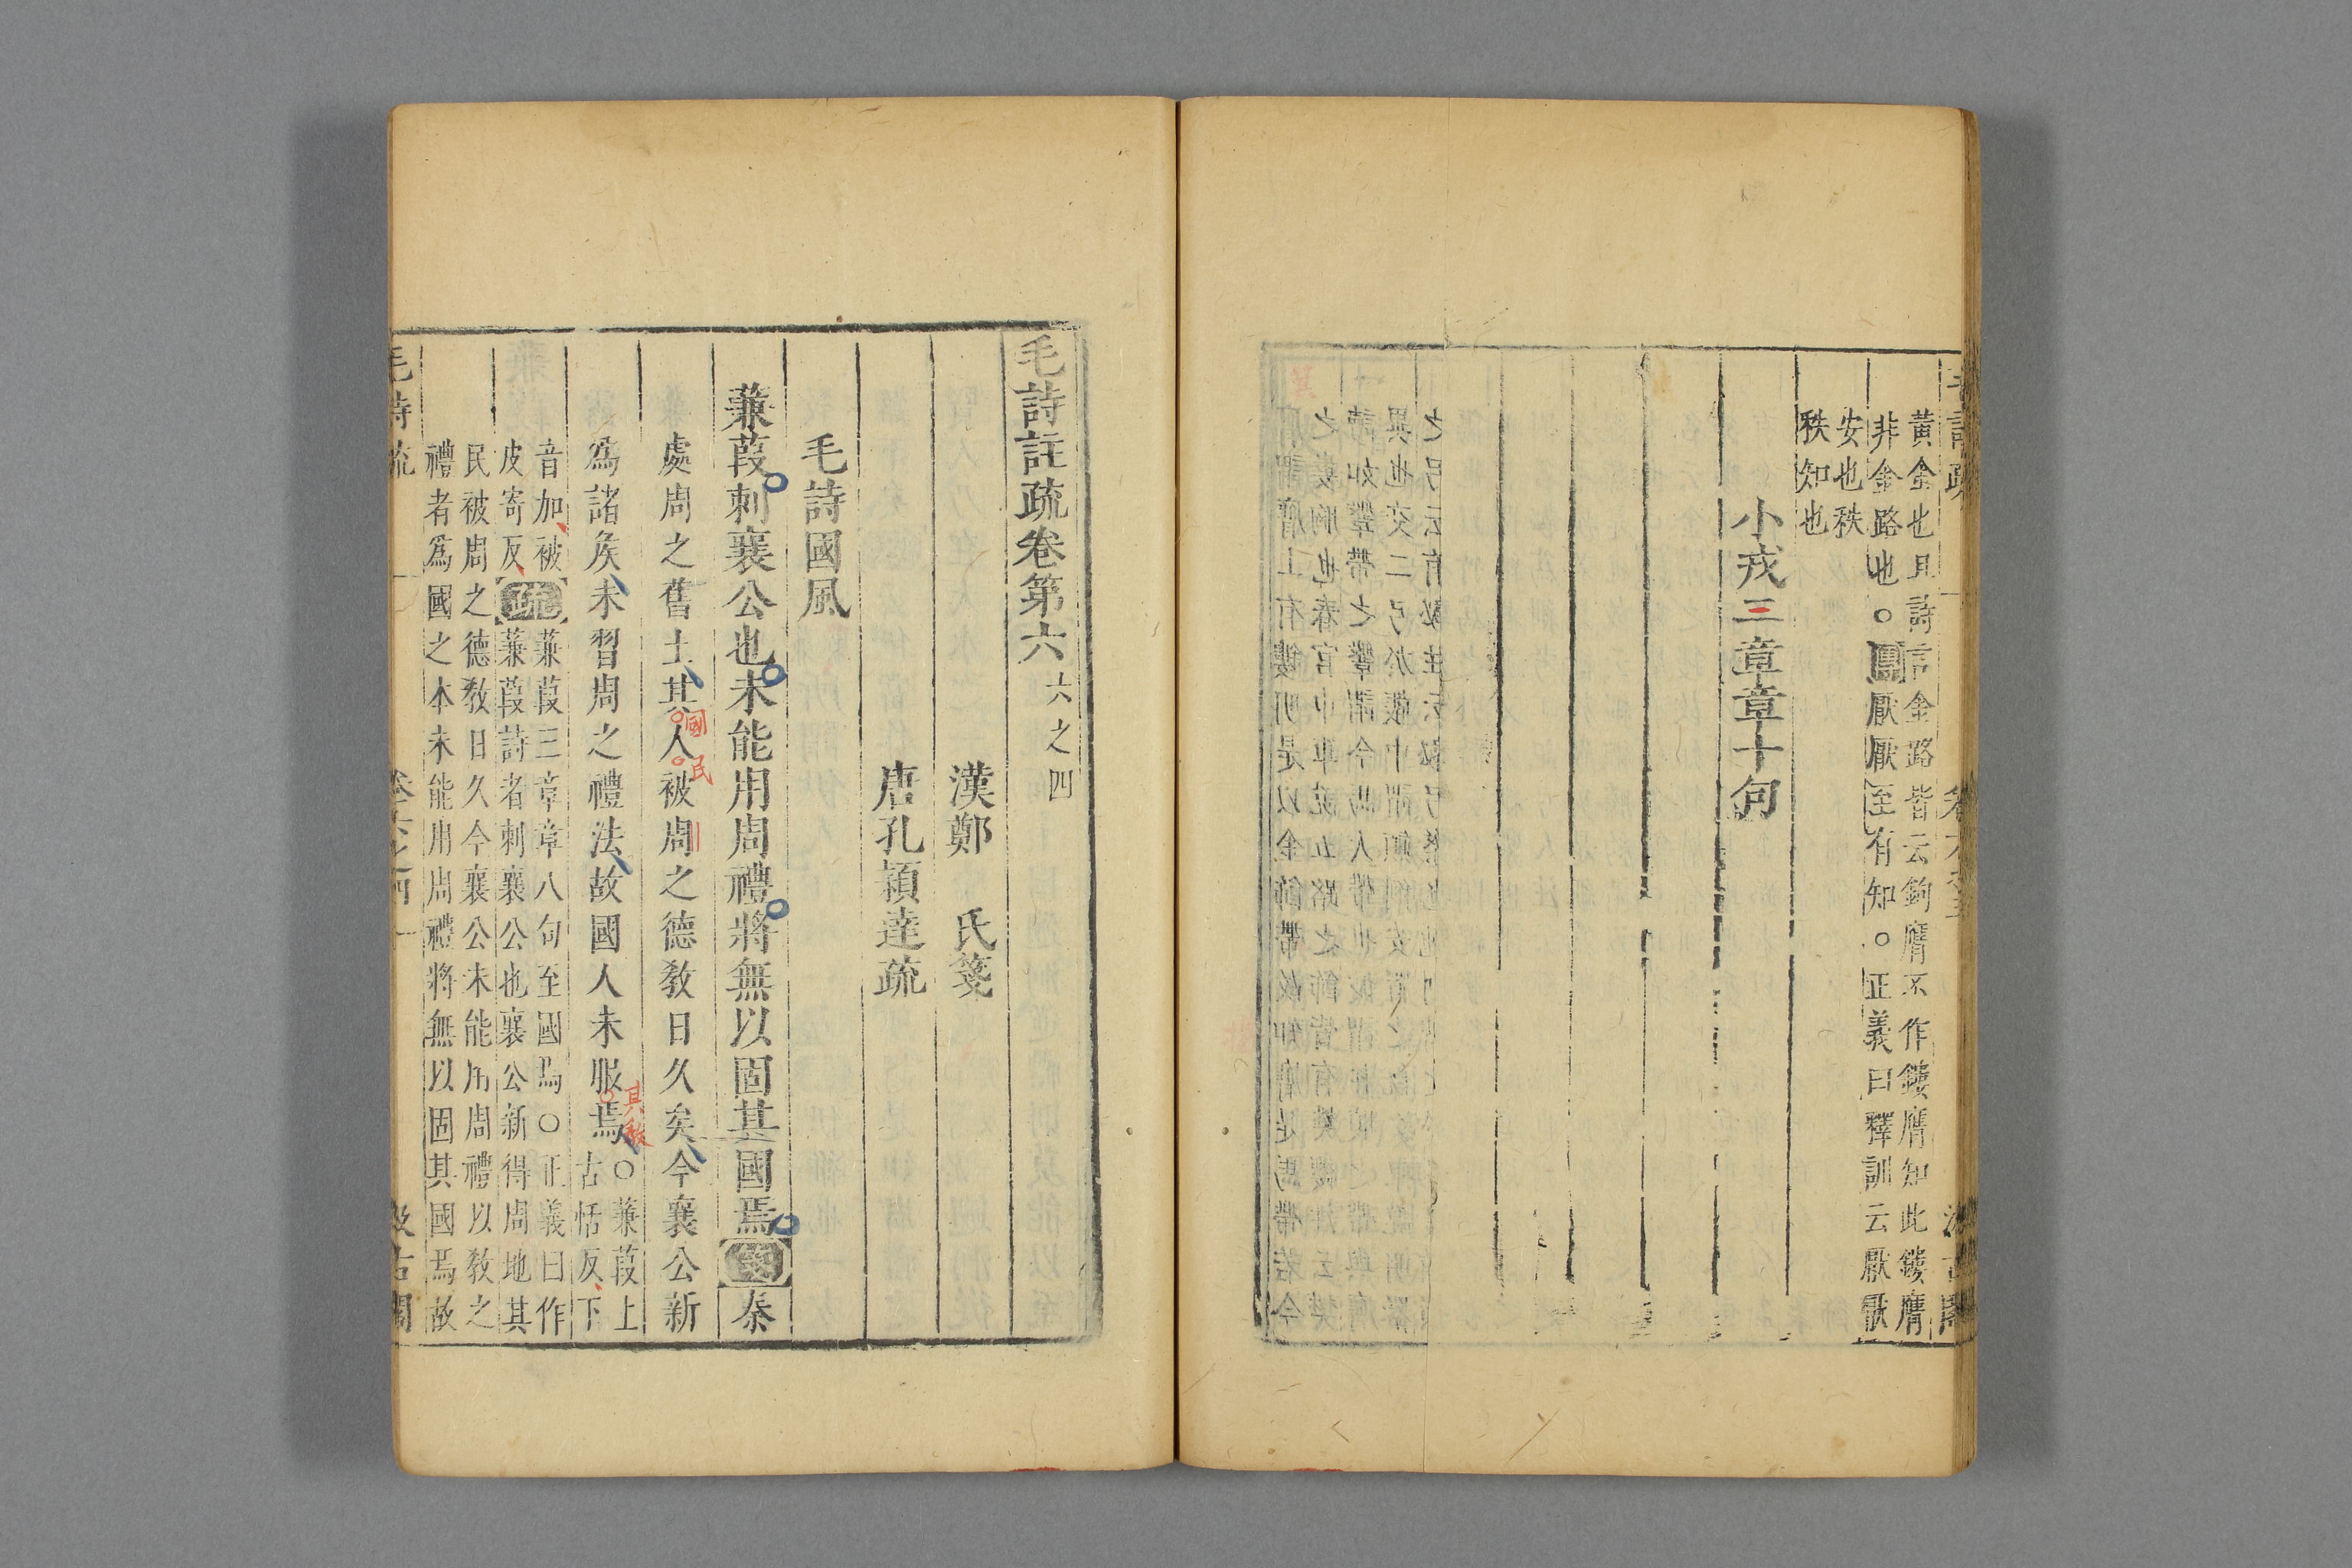 黃金也且詩言金路皆云鉤膺不作鏤膺知此鏤膺
非金路也○團厭厭至有知○正義曰釋訓云厭厭
安也秩
秩知也
小戎三章章十句
毛詩註疏卷第六 六之四
漢鄭 氏箋
唐孔穎達疏
毛詩國風
蒹葭刺襄公也未能用周禮將無以固其國焉箋秦
處周之舊土其人被周之德敎日久矣今襄公新
國 民
爲諸矦未習周之禮法故國人未服焉○蒹葭上
古恬反下
其敎
音加被
皮寄反
疏蒹葭三章章八句至國焉○正義曰作
蒹葭詩者刺襄公也襄公新得周地其
民被周之德敎日久今襄公未能用周禮以敎之
禮者爲國之本未能用周禮將無以固其國焉故
毛詩疏 卷六之四 一 汲古閣